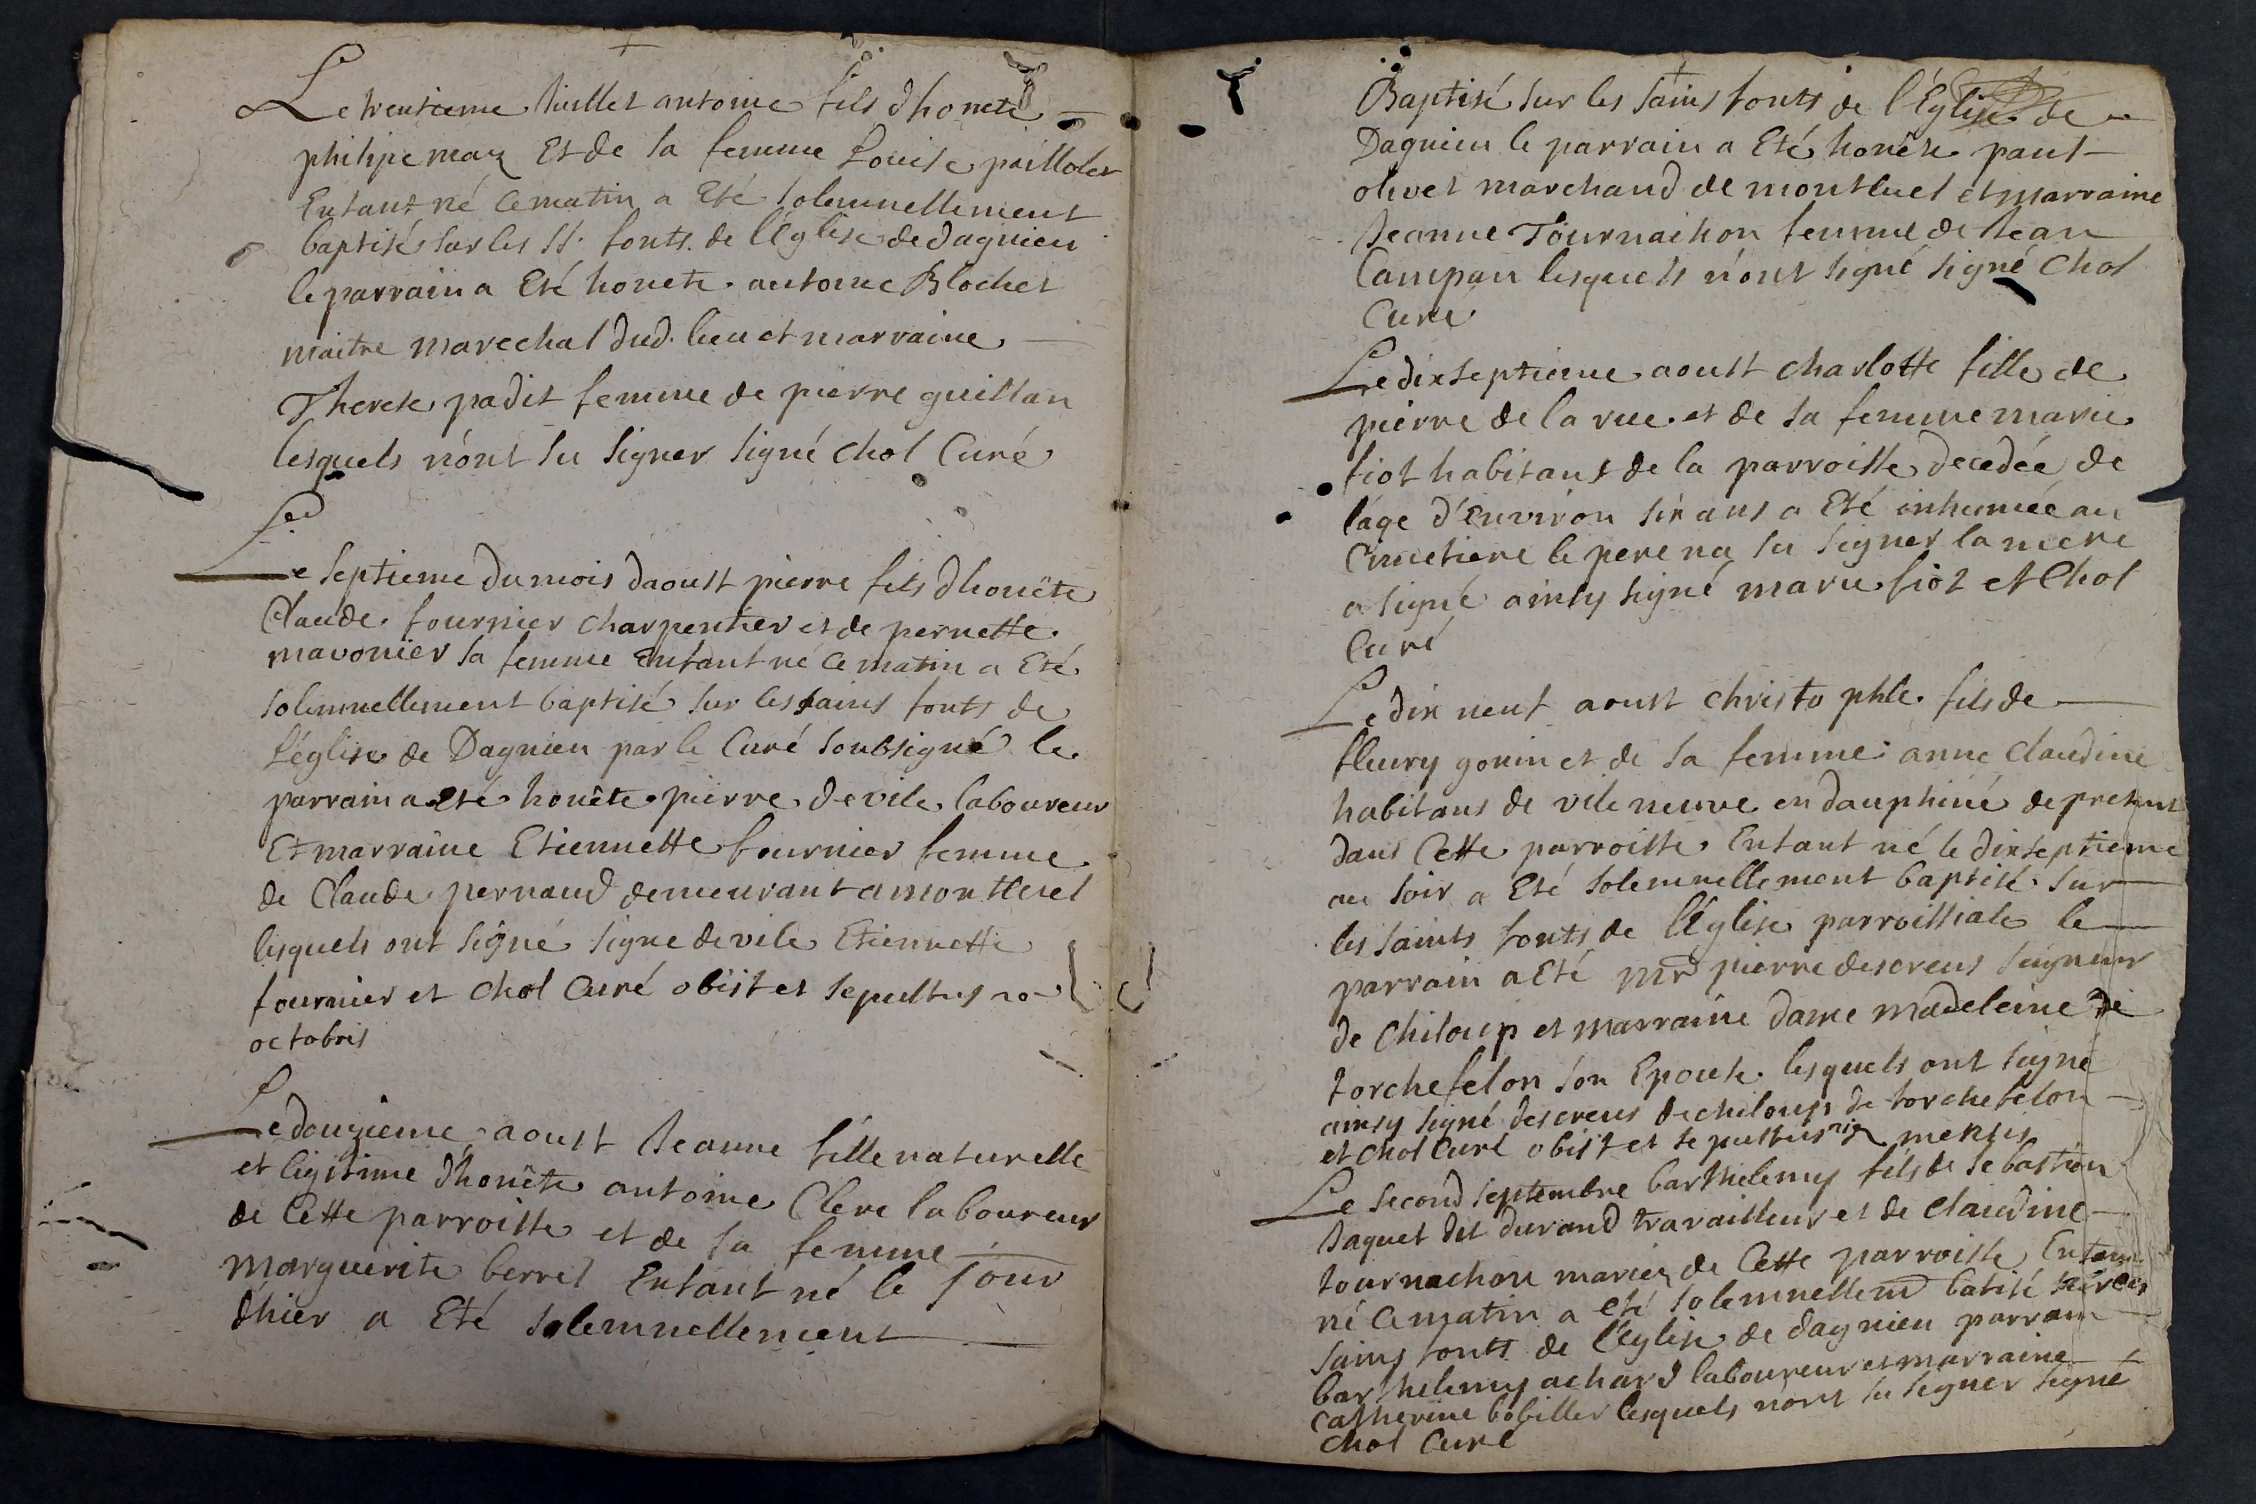 Le trentieme Juillet antoine fils dhonete
philipe maz Et de sa femme Louise paillolet
Enfant né ce matin a Eté solemnellement
baptisé sur les SS. fonts de l'Eglise de dagnieu
le parrain a Eté honete antoine Blochet
maitre marechal dud. lieu et marraine
Therese padit femme de pierre guillan
lesquels n'ont su signer signé chol Curé
Le septieme du mois daoust pierre fils dhonête
Claude fournier charpentier et de pernette
mavonier sa femme Enfant né ce matin a Eté
solemnellement baptisé sur les sains fonts de
l'église de Dagnieu par le Curé soubsigné le
parrain a eté honête pierre devile laboureur
Et marraine Etiennette fournier femme
de Claude pernaud demeurant a
lesquels ont signé signe devile Etiennette
fournier et chol Curé obiit et sepultus 20
octobris
Le douzieme aoust Jeanne fille naturelle
et legitime d'honête antoine Clere laboureur
de Cette parroisse et de sa femme
marguerite berret Enfant né le jour
dhier a Eté solemnellement
Baptisé sur les sains fonts de l'Eglise de
Dagnieu le parrain a Eté honête paul
olivet marchand de montluel et marraine
Jeanne Tournaihon femme de Jean
Campan lesquels n'ont signé signé Chol
Curé
Le dixseptieme aoust charlotte fille de
pierre de la rue et de sa femme marie
fiot habitant de la parroisse decedée de
l'age d'environ six ans a Eté inhumée au
Cimetiere le pere na su signer la mere
a signé ainsy signé marie fiot et Chol
Curé
Le dix neuf aoust christophle fils de
fleury gonin et de sa femme anne Claudine
habitans de vile neuve en dauphiné de present
dans Cette parroisse Enfant né le dixseptieme
au soir a Eté solemnellement baptisé sur
les saints fonts de l'Eglise parroissiale le
parrain a Eté mr pierre descreus seigneur
de Chiloup et marraine dame madeleine de
torchefelon son Epouse lesquels ont signe
ainsy signé descreus de chiloup de torchefelon
et chol Curé obiit et sepultus mensis
Le second septembre barthelemy fils de sebastien
Jaquet dit durand travailleur et de Claudine
tournachon mariez de Cette parroisse Enfant
né ce matin a eté solemnellem batisé sur les
sains fonts de l'Eglise de dagnieu parrain
barthelemy achard laboureur et marraine
catherine bobiller lesquels n'ont su signer signé
chol Curé